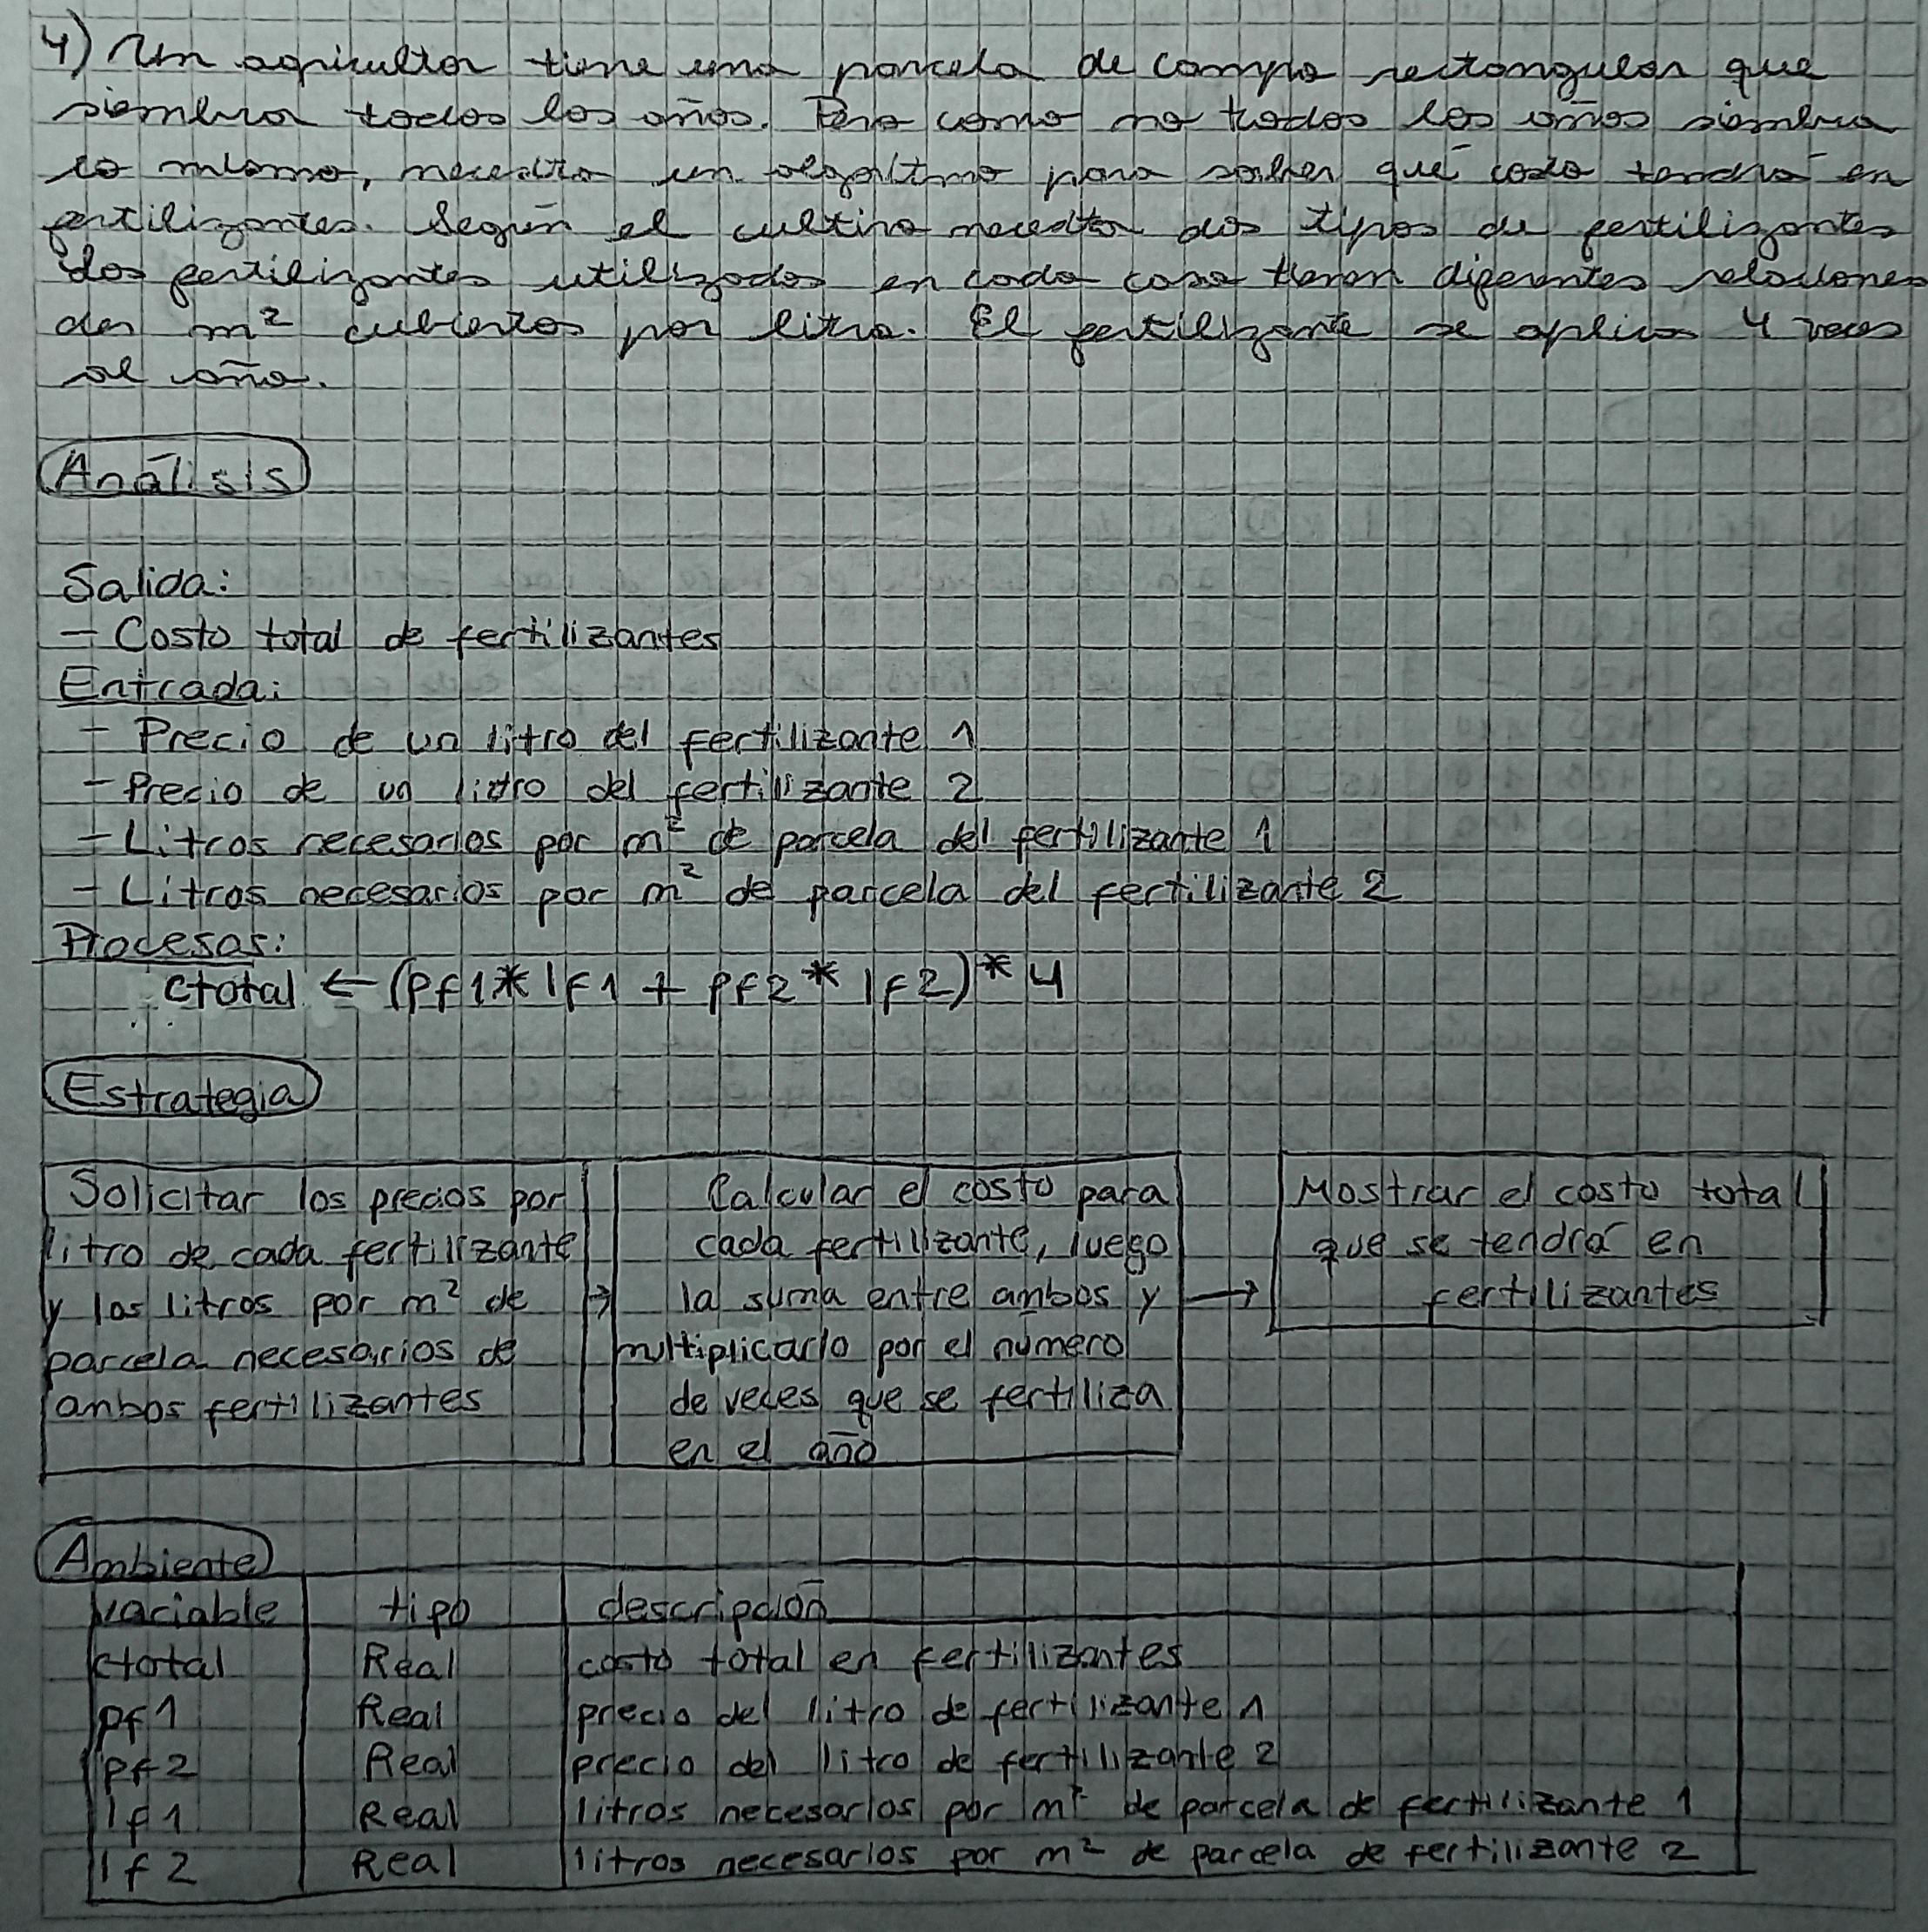 4) Un agricultor tiene una parcela de campo rectangular que
siembra todos los años. Pero como no todos los años siembra
lo mismo, necesita un algoritmo para saber qué costo tendrá en
fertilizantes. Según el cultivo necesita dos tipos de fertilizantes
los fertilizantes utilizados en cada caso tienen diferentes relaciones
de m² cubiertos por litro. El fertilizante se aplica 4 veces
al año.
Análisis
Salida:
- Costo total de fertilizantes
Entrada:
- Precio de un litro del fertilizante 1
- Precio de un litro del fertilizante 2
- Litros necesarios por m² de parcela del fertilizante 1
- Litros necesarios por m² de parcela del fertilizante 2
Procesos:
ctotal ← (pf1* lf1 + pf2* lf2)* 4
Estrategia
Solicitar los precios por
litro de cada fertilizante
y los litros por m² de
parcela necesarios de
ambos fertilizantes
→
Calcular el costo para
cada fertilizante, luego
la suma entre ambos y
multiplicarlo por el número
de veces que se fertiliza
en el año
→
Mostrar el costo total
que se tendrá en
fertilizantes
Ambiente
variable tipo descripción
ctotal Real costo total en fertilizantes
pf1 Real precio del litro de fertilizante 1
pf2 Real precio del litro de fertilizante 2
lf1 Real litros necesarios por m² de parcela de fertilizante 1
lf2 Real litros necesarios por m² de parcela de fertilizante 2